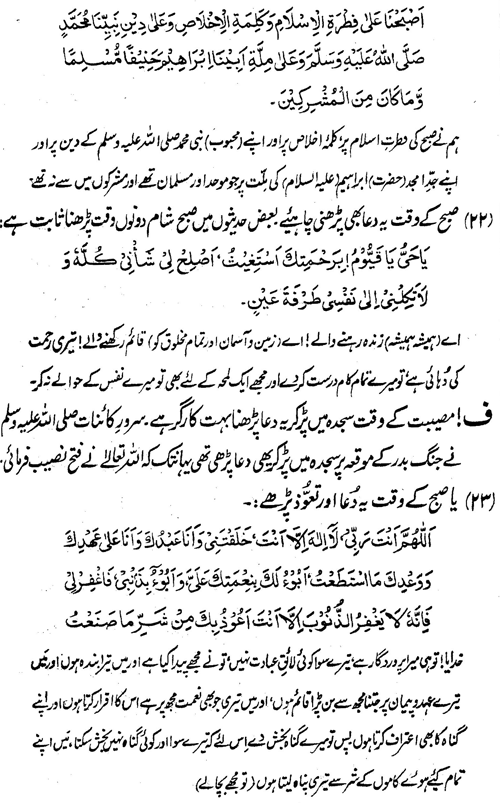 اَصْبَحْنَا عَلٰى فِطْرَةِ الْاِسْلَامِ وَكَلِمَةِ الْاِخْلَاصِ وَعَلٰى دِيْنِ نَبِيِّنَا مُحَمَّدٍ
صَلَّى اللهُ عَلَيْهِ وَسَلَّمَ وَعَلٰى مِلَّةِ اَبِيْنَا اِبْرَاهِيْمَ حَنِيْفًا مُّسْلِمًا
وَّمَا كَانَ مِنَ الْمُشْرِكِيْنَ۔
ہم نے صبح کی فطرتِ اسلام پر، کلمۂ اخلاص پر اور اپنے (محبوب) نبی محمد صلی اللہ علیہ وسلم کے دین پر اور
اپنے جدِّ امجد (حضرت) ابراہیم (علیہ السلام) کی ملّت پر جو موحد اور مسلمان تھے اور مشرکوں میں سے نہ تھے۔
(۲۲) صبح کے وقت یہ دعا بھی پڑھنی چاہئیے بعض حدیثوں میں صبح شام دونوں وقت پڑھنا ثابت ہے:
يَاحَيُّ يَا قَيُّوْمُ! بِرَحْمَتِكَ اَسْتَغِيْثُ، اَصْلِحْ لِىْ شَأْنِىْ كُلَّهٗ وَ
لَا تَكِلْنِىْ اِلٰى نَفْسِىْ طَرْفَةَ عَيْنٍ۔
اے (ہمیشہ ہمیشہ) زندہ رہنے والے! اے (زمین و آسمان اور تمام مخلوق کو) قائم رکھنے والے! تیری رحمت
کی دُہائی ہے، تو میرے تمام کام درست کر دے اور مجھے ایک لمحہ کے لئے بھی تو میرے نفس کے حوالے نہ کر۔
ف! مصیبت کے وقت سجدہ میں پڑ کر یہ دعا پڑھنا بہت کارگر ہے۔ سرورِ کائنات صلی اللہ علیہ وسلم
نے جنگ بدر کے موقعہ پر سجدہ میں پڑ کر یہی دعا پڑھی تھی یہانتک کہ اللہ تعالےٰ نے فتح نصیب فرمائی۔
(۲۳) یا صبح کے وقت یہ دُعا اور تعوّذ پڑھے:۔
اَللّٰهُمَّ اَنْتَ رَبِّىْ، لَآ اِلٰهَ اِلَّا اَنْتَ، خَلَقْتَنِىْ وَاَنَا عَبْدُكَ وَاَنَا عَلٰى عَهْدِكَ
وَوَعْدِكَ مَا اسْتَطَعْتُ، اَبُوْءُ لَكَ بِنِعْمَتِكَ عَلَىَّ، وَاَبُوْءُ بِذَنْۢبِىْ، فَاغْفِرْ لِىْ
فَاِنَّهٗ لَا يَغْفِرُ الذُّنُوْبَ اِلَّا اَنْتَ اَعُوْذُ بِكَ مِنْ شَرِّ مَا صَنَعْتُ
خدایا! تو ہی میرا پروردگار ہے، تیرے سوا کوئی لائقِ عبادت نہیں، تو نے مجھے پیدا کیا ہے اور میں تیرا بندہ ہوں اور میں
تیرے عہد و پیمان پر جتنا مجھ سے بن پڑا قائم ہوں، اور میں تیری جو بھی نعمت مجھ پر ہے اس کا اقرار کرتا ہوں اور اپنے
گناہ کا بھی اعتراف کرتا ہوں پس تو میرے گناہ بخش دے اس لئے کہ تیرے سوا اور کوئی گناہ نہیں بخش سکتا، میں اپنے
تمام کیئے ہوئے کاموں کے شر سے تیری پناہ لیتا ہوں (تو مجھے بچا لے)